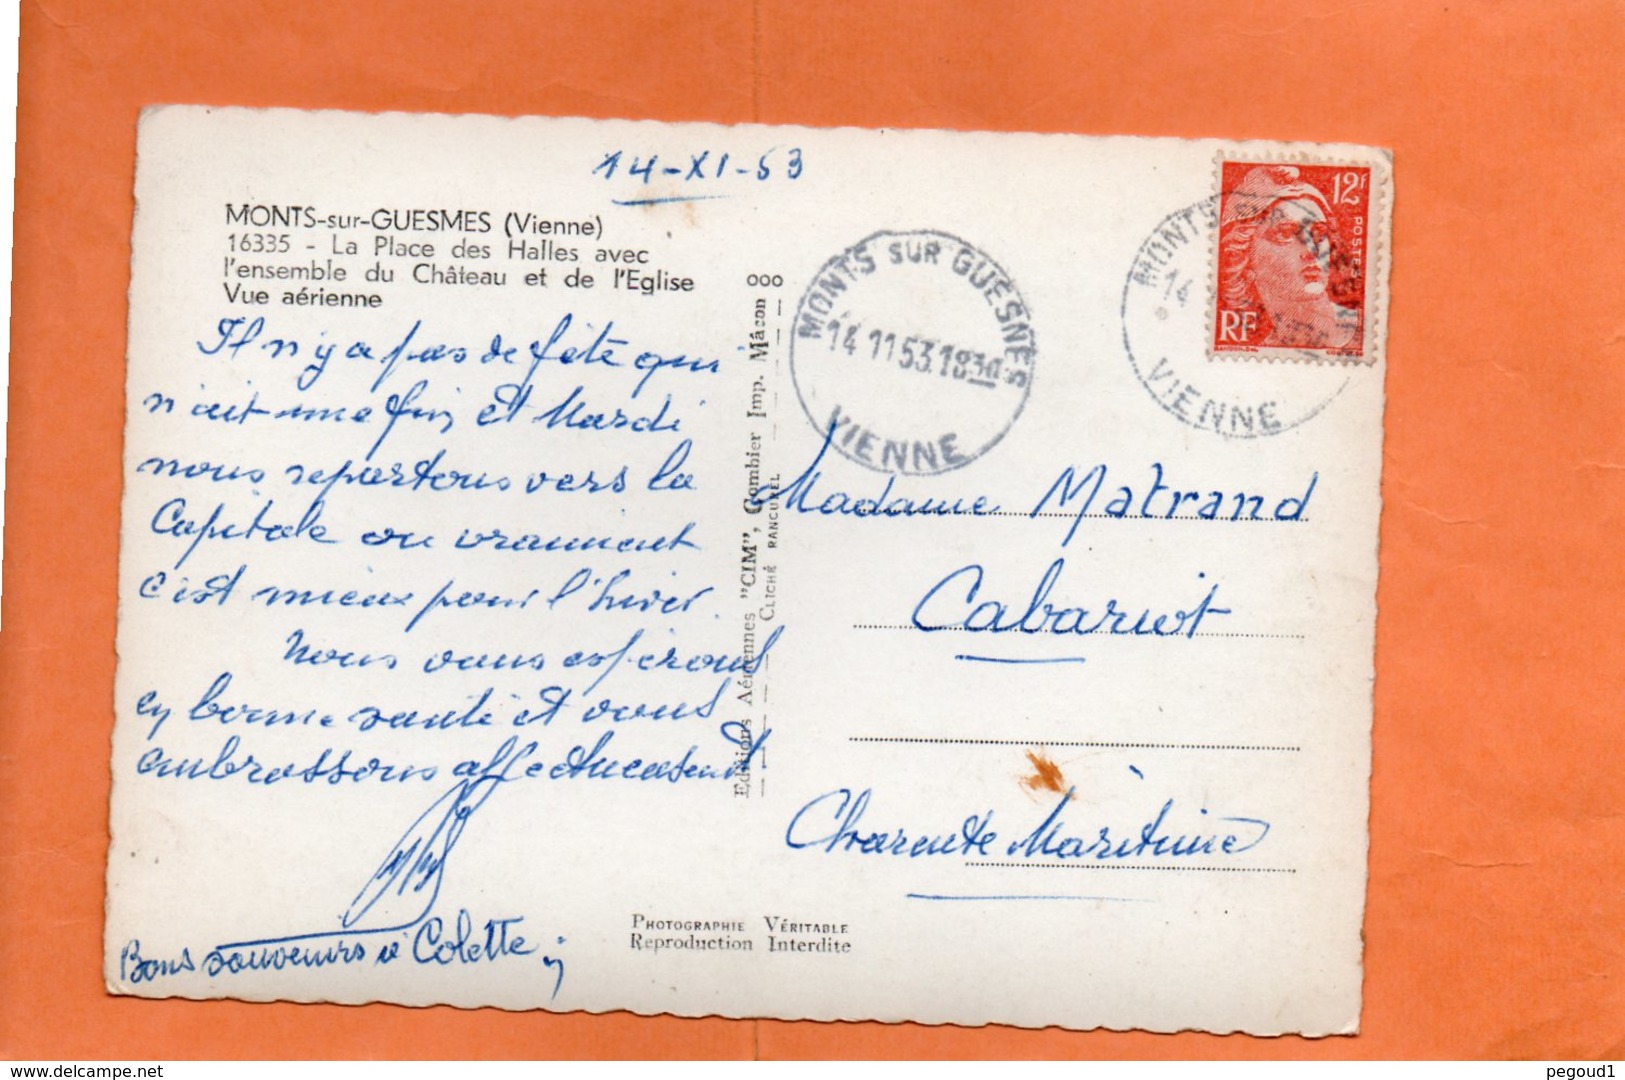 14-XI-53
MONTS-sur-GUESMES (Vienne)
16335 - La Place des Halles avec
l'ensemble du Château et de l'Eglise
Vue aérienne
Il n'y a pas de fête qui
n'ait une fin et Mardi
nous repartons vers la
Capitale ou vraiment
c'est mieux pour l'hiver.
Nous vous espérons
en bonne santé et vous
embrassons affectueusement
Bons souvenirs à Colette
ooo
Editions Aériennes "CIM", Combier Imp. Mâcon
CLICHÉ RANCUREL
MONTS SUR GUESNES
14 11 53.18 30
VIENNE
MONTS SUR GUESNES
14
VIENNE
12f
POSTES
RF
Madame Matrand
Cabariot
Charente Maritime
PHOTOGRAPHIE VÉRITABLE
Reproduction Interdite
delcampe.net
pegoud1